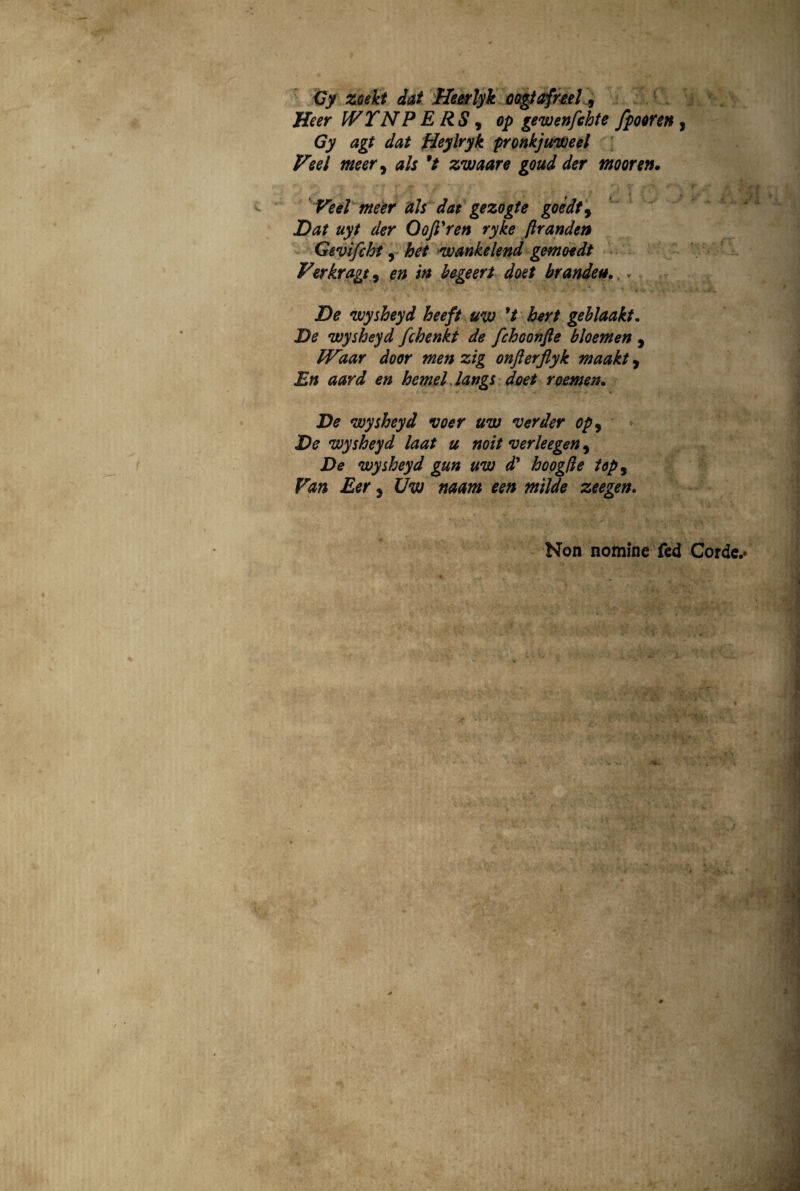 Gy zoekt dat Heerlyk oogtafreel,
Heer WYNPERS, op gewenſchte ſpooren,
Gy agt dat Heylryk pronkjuweel
Veel meer, als 't zwaare goud der mooren.
Veel meer als dat gezogte goedt,
Dat uyt der Ooſt'ren ryke ſtranden
Geviſcht, het wankelend gemoedt
Verkragt, en in begeert doet branden.
De wysheyd heeft uw 't hert geblaakt.
De wysheyd ſchenkt de ſchoonſte bloemen,
Waar door men zig onſterflyk maakt,
En aard en hemel langs doet roemen.
De wysheyd voer uw verder op,
De wysheyd laat u noit verleegen,
De wysheyd gun uw d' hoogſte top,
Van Eer, Uw naam een milde zeegen.
Non nomine ſed Corde.